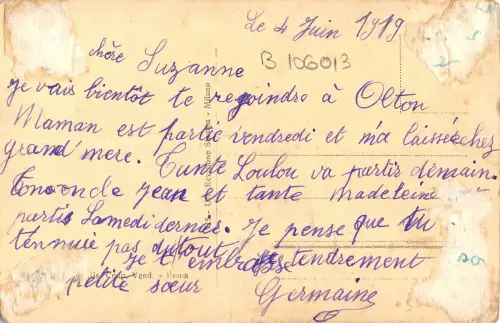 Le 4 Juin 1919
B 106013
chère Suzanne
Je vais bientôt te rejoindre à Olton
Maman est partie vendredi et m'a laissée chez
grand mere. Tante Loulou va partir demain.
Ton oncle Jean et tante Madeleine
partis Samedi dernier. Je pense que tu
t'ennuie pas du tout.
Je t'embrasse tendrement
petite sœur Germaine
Milano
Vend. - Roma